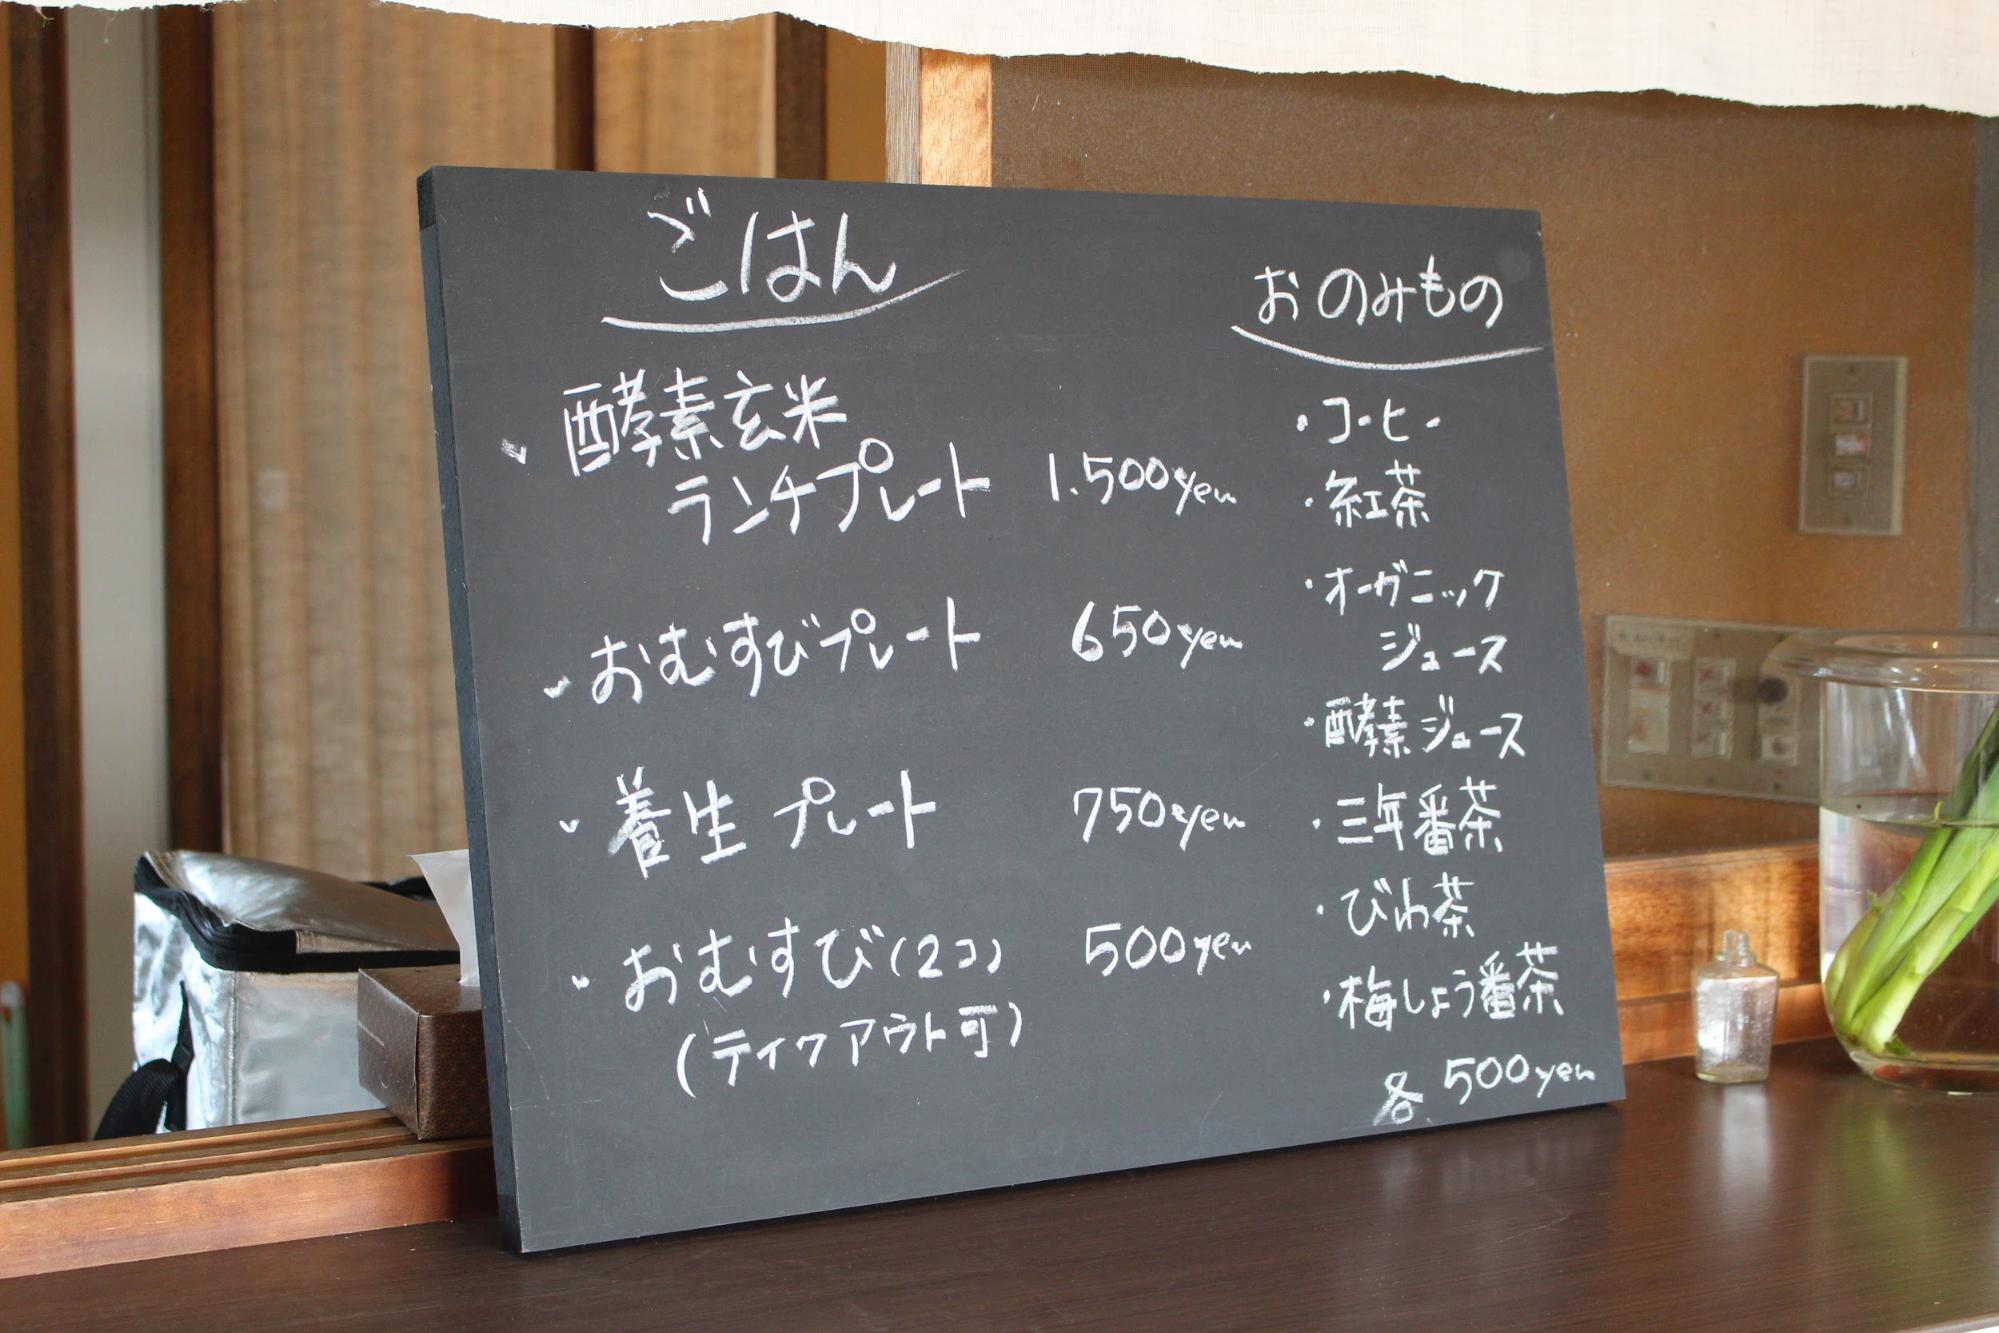 ごはん
・酵素玄米
ランチプレート 1.500yen
・おむすびプレート 650yen
・養生プレート 750yen
・おむすび(2コ) 500yen
(テイクアウト可)
おのみもの
・コーヒー
・紅茶
・オーガニック
ジュース
・酵素ジュース
・三年番茶
・びわ茶
・梅しょう番茶
各500yen